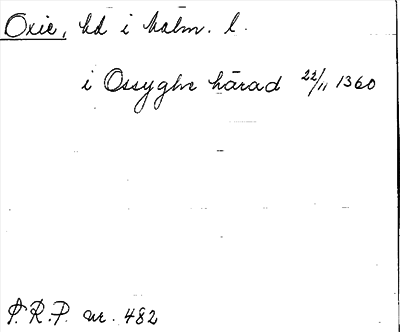 Oxie, hd i Malm. l.
i Ossyghe härad 22/11 1360
S.R.P. nr. 482